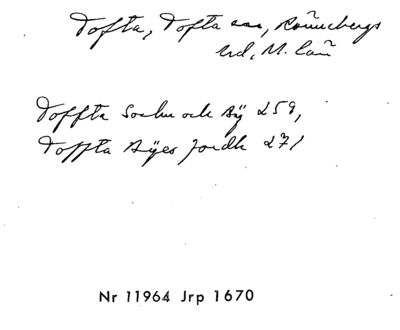 Tofta, Tofta sn, Rönnebergs
hd, M. län
Toffta Sochn och Bÿ 259,
Toffta Bÿes Jordh 271
Nr 11964 Jrp 1670